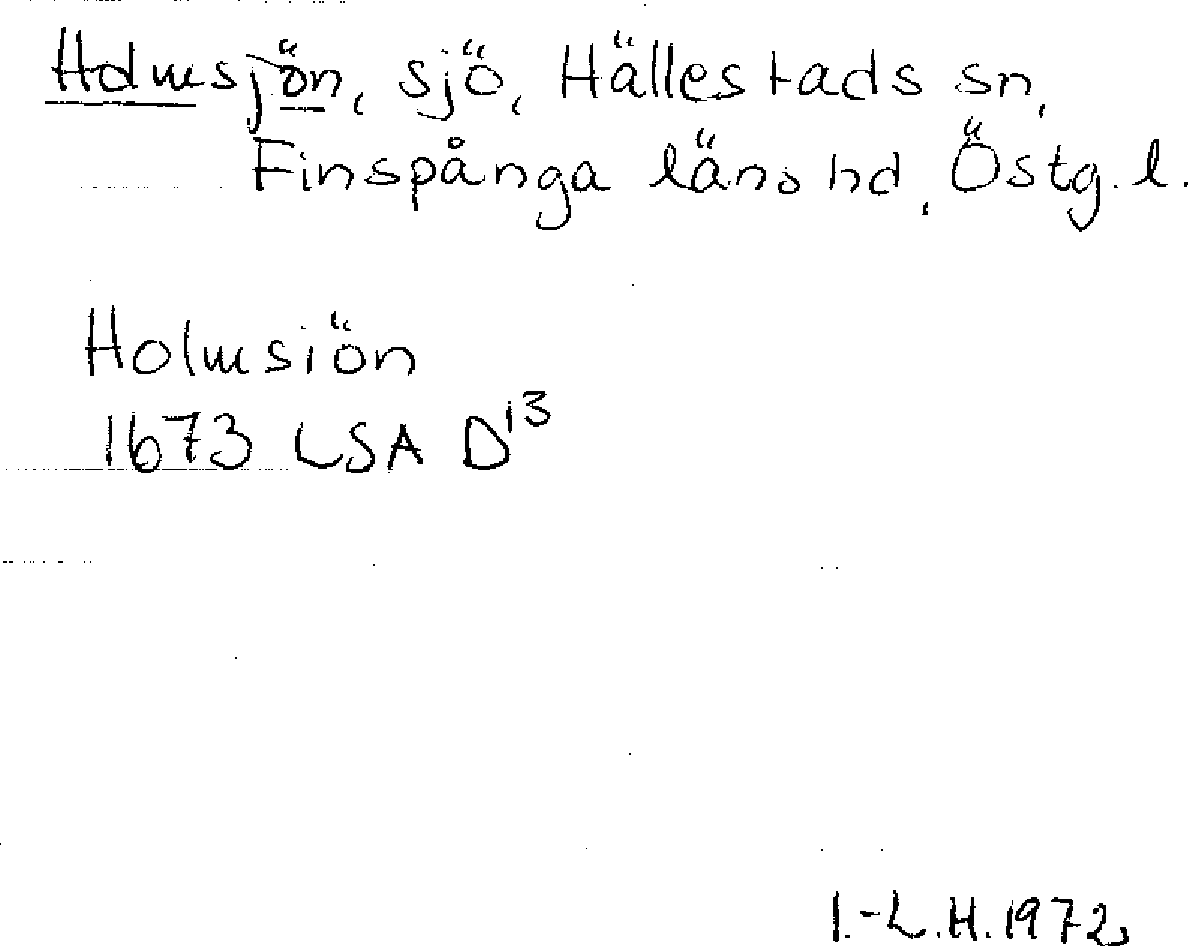 Holmsjön, sjö, Hällestads sn,
Finspånga läns hd, Östg. l.
Holmsiön
1673 LSA D13
I.-L.H. 1972